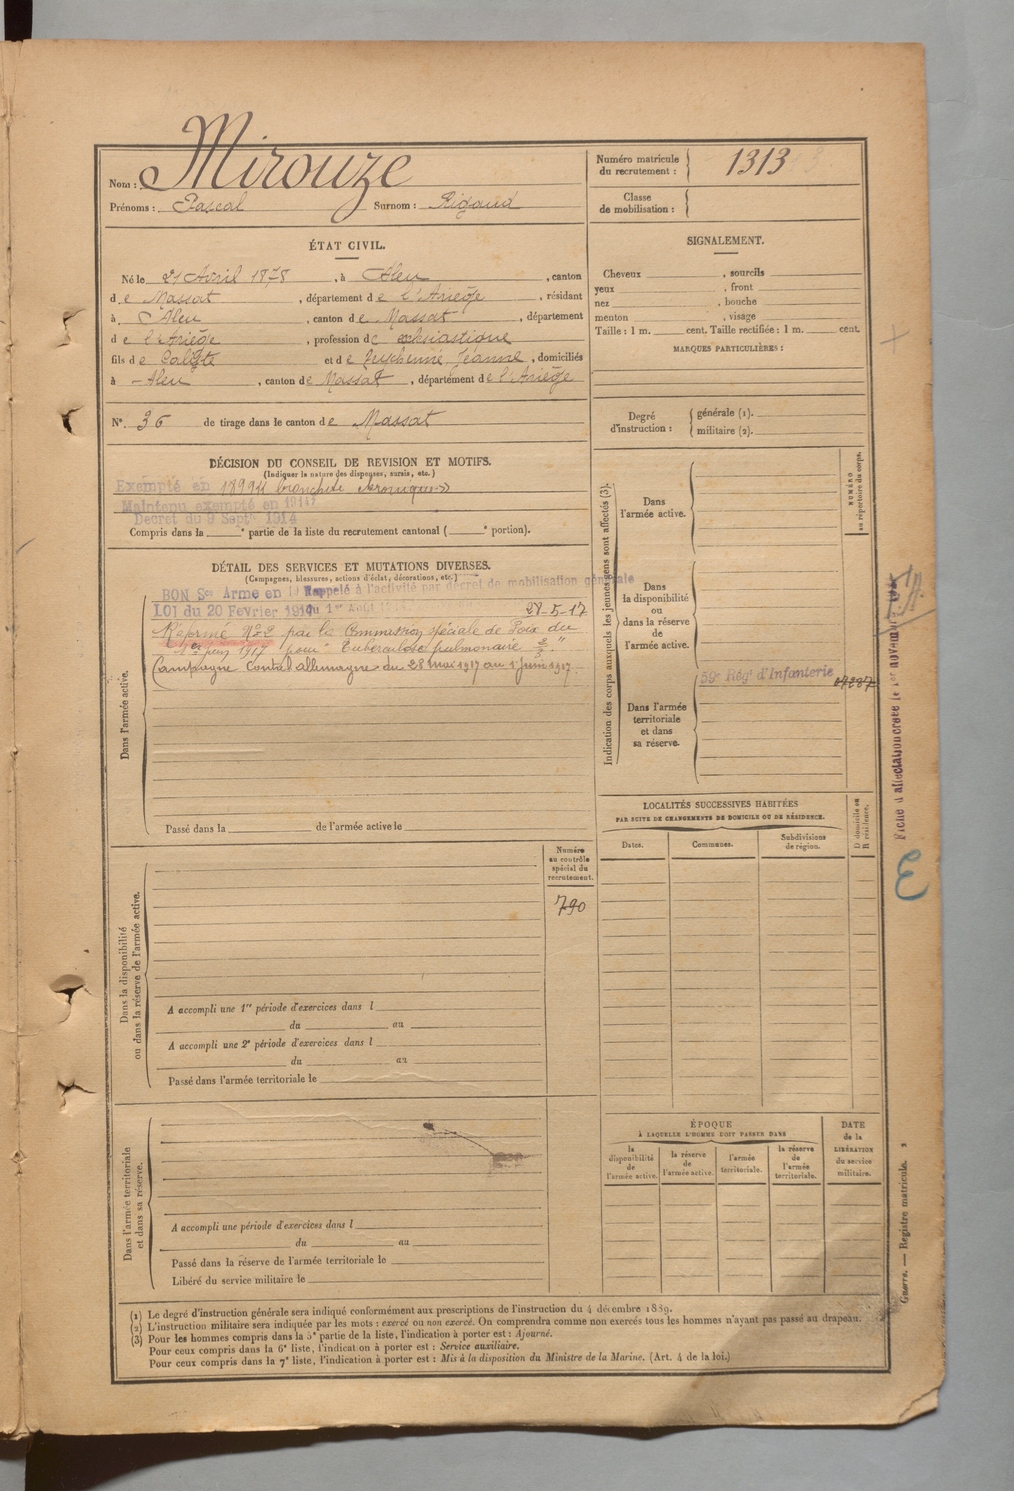 Nom : Mirouze
Prénoms : Pascal Surnom : Rigaud
Numéro matricule du recrutement : 1313
Classe de mobilisation :
ÉTAT CIVIL.
Né le 21 Avril 1878, à Aleu, canton
de Massat, département de l'Ariège, résidant
à Aleu, canton de Massat, département
de l'Ariège, profession de ecclésiastique
fils de Calixte et de Jeanne, domiciliés
à Aleu, canton de Massat, département de l'Ariège
N° 36 de tirage dans le canton de Massat
SIGNALEMENT.
Cheveux , sourcils
yeux , front
nez , bouche
menton , visage
Taille : 1 m. cent. Taille rectifiée : 1 m. cent.
MARQUES PARTICULIÈRES :
Degré d'instruction : générale (1).
militaire (2).
DÉCISION DU CONSEIL DE REVISION ET MOTIFS.
(Indiquer la nature des dispenses, sursis, etc.)
Exempté en 1899 « bronchite chronique »
Maintenu exempté en 1914
Décret du 9 Sept. 1914
Compris dans la e partie de la liste du recrutement cantonal ( e portion).
DÉTAIL DES SERVICES ET MUTATIONS DIVERSES.
(Campagnes, blessures, actions d'éclat, décorations, etc.)
BON Sce Armé en Rappelé à l'activité par décret de mobilisation générale
LOI du 20 Février 1917 du 1er Août 28-5-17
Réformé N° 2 par la Commission spéciale de Foix du
1er juin 1917 pour "Tuberculose pulmonaire"
Campagne Contre l'allemagne du 28 mai 1917 au 1 Juin 1917.
Dans l'armée active.
Passé dans la de l'armée active le
Indication des corps auxquels les jeunes gens sont affectés (3).
NUMÉRO au répertoire du corps.
Dans l'armée active.
Dans la disponibilité ou dans la réserve de l'armée active.
Dans l'armée territoriale et dans sa réserve.
59e Régt d'Infanterie
LOCALITÉS SUCCESSIVES HABITÉES
PAR SUITE DE CHANGEMENTS DE DOMICILE OU DE RÉSIDENCE.
Dates. Communes. Subdivisions de région. D domicile ou R résidence.
Numéro au contrôle spécial du recrutement.
790
Dans la disponibilité ou dans la réserve de l'armée active.
A accompli une 1re période d'exercices dans l
du au
A accompli une 2e période d'exercices dans l
du au
Passé dans l'armée territoriale le
Dans l'armée territoriale et dans sa réserve.
A accompli une période d'exercices dans l
du au
Passé dans la réserve de l'armée territoriale le
Libéré du service militaire le
ÉPOQUE
À LAQUELLE L'HOMME DOIT PASSER DANS
la disponibilité de l'armée active.
la réserve de l'armée active.
l'armée territoriale.
la réserve de l'armée territoriale.
DATE de la LIBÉRATION du service militaire.
Fiche d'affectation créée le 1er novembre
Guerre. — Registre matricule. 2
(1) Le degré d'instruction générale sera indiqué conformément aux prescriptions de l'instruction du 4 décembre 1889.
(2) L'instruction militaire sera indiquée par les mots : exercé ou non exercé. On comprendra comme non exercés tous les hommes n'ayant pas passé au drapeau.
(3) Pour les hommes compris dans la 5e partie de la liste, l'indication à porter est : Ajourné.
Pour ceux compris dans la 6e liste, l'indication à porter est : Service auxiliaire.
Pour ceux compris dans la 7e liste, l'indication à porter est : Mis à la disposition du Ministre de la Marine. (Art. 4 de la loi.)